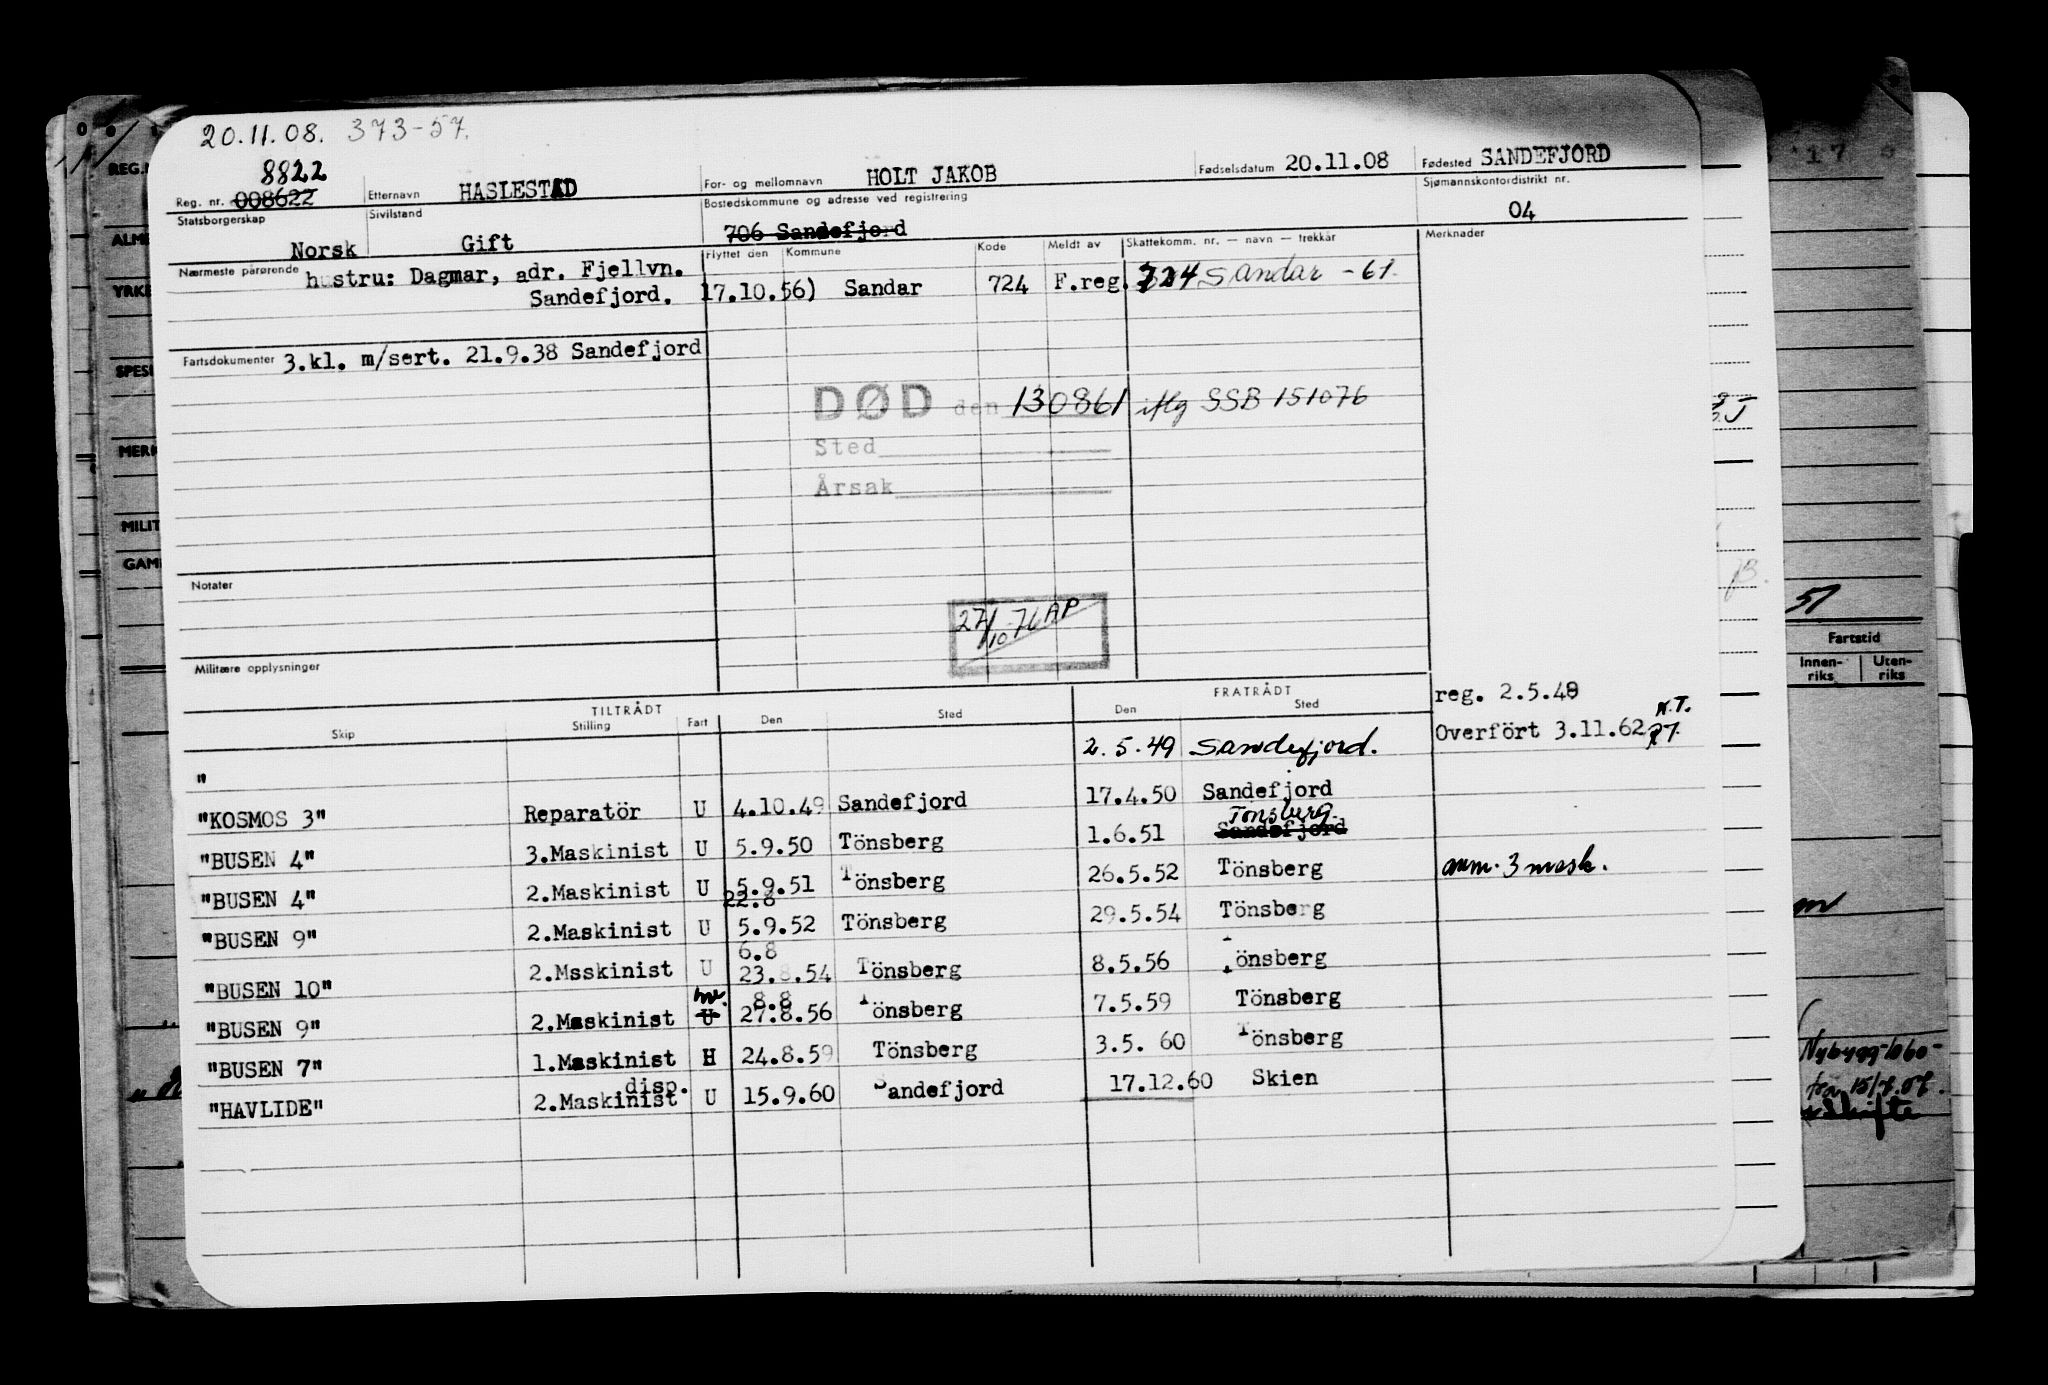 20.11.08. 373-57.
8822
Reg. nr. 008622 Etternavn HASLESTAD For- og mellomnavn HOLT JAKOB Fødselsdatum 20.11.08 Fødested SANDEFJORD
Statsborgerskap Norsk Sivilstand Gift Bostedskommune og adresse ved registrering 706 Sandefjord Sjømannskontordistrikt nr. 04
Nærmeste pårørende hustru: Dagmar, adr. Fjellvn. Flyttet den Kommune Kode Meldt av Skattekomm. nr. — navn — trekkår Merknader
Sandefjord. 17.10.56) Sandar 724 F.reg. 724 Sandar -61.
Fartsdokumenter 3.kl. m/sert. 21.9.38 Sandefjord
DØD den 130861 iflg SSB 151076
Sted
Årsak
Notater
27/10-76 AP
Militære opplysninger
TILTRÅDT FRATRÅDT reg. 2.5.49
Skip Stilling Fart Den Sted Den Sted
N.T.
" 2.5.49 Sandefjord. Overfört 3.11.62
"KOSMOS 3" Reparatör U 4.10.49 Sandefjord 17.4.50 Sandefjord
Tönsberg.
"BUSEN 4" 3.Maskinist U 5.9.50 Tönsberg 1.6.51 Sandefjord
"BUSEN 4" 2.Maskinist U 5.9.51 Tönsberg 26.5.52 Tönsberg anm. 3 mask.
22.8
"BUSEN 9" 2.Maskinist U 5.9.52 Tönsberg 29.5.54 Tönsberg
6.8
"BUSEN 10" 2.Msskinist U 23.8.54 Tönsberg 8.5.56 Tönsberg
hv. 8.8
"BUSEN 9" 2.Maskinist U 27.8.56 Tönsberg 7.5.59 Tönsberg
"BUSEN 7" 1.Maskinist H 24.8.59 Tönsberg 3.5. 60 Tönsberg
disp.
"HAVLIDE" 2.Maskinist U 15.9.60 Sandefjord 17.12.60 Skien
REG.
ALME
YRKE
SPESI
MERK
MILIT
GAM
51
Fartstid
Innen-riks Uten-riks